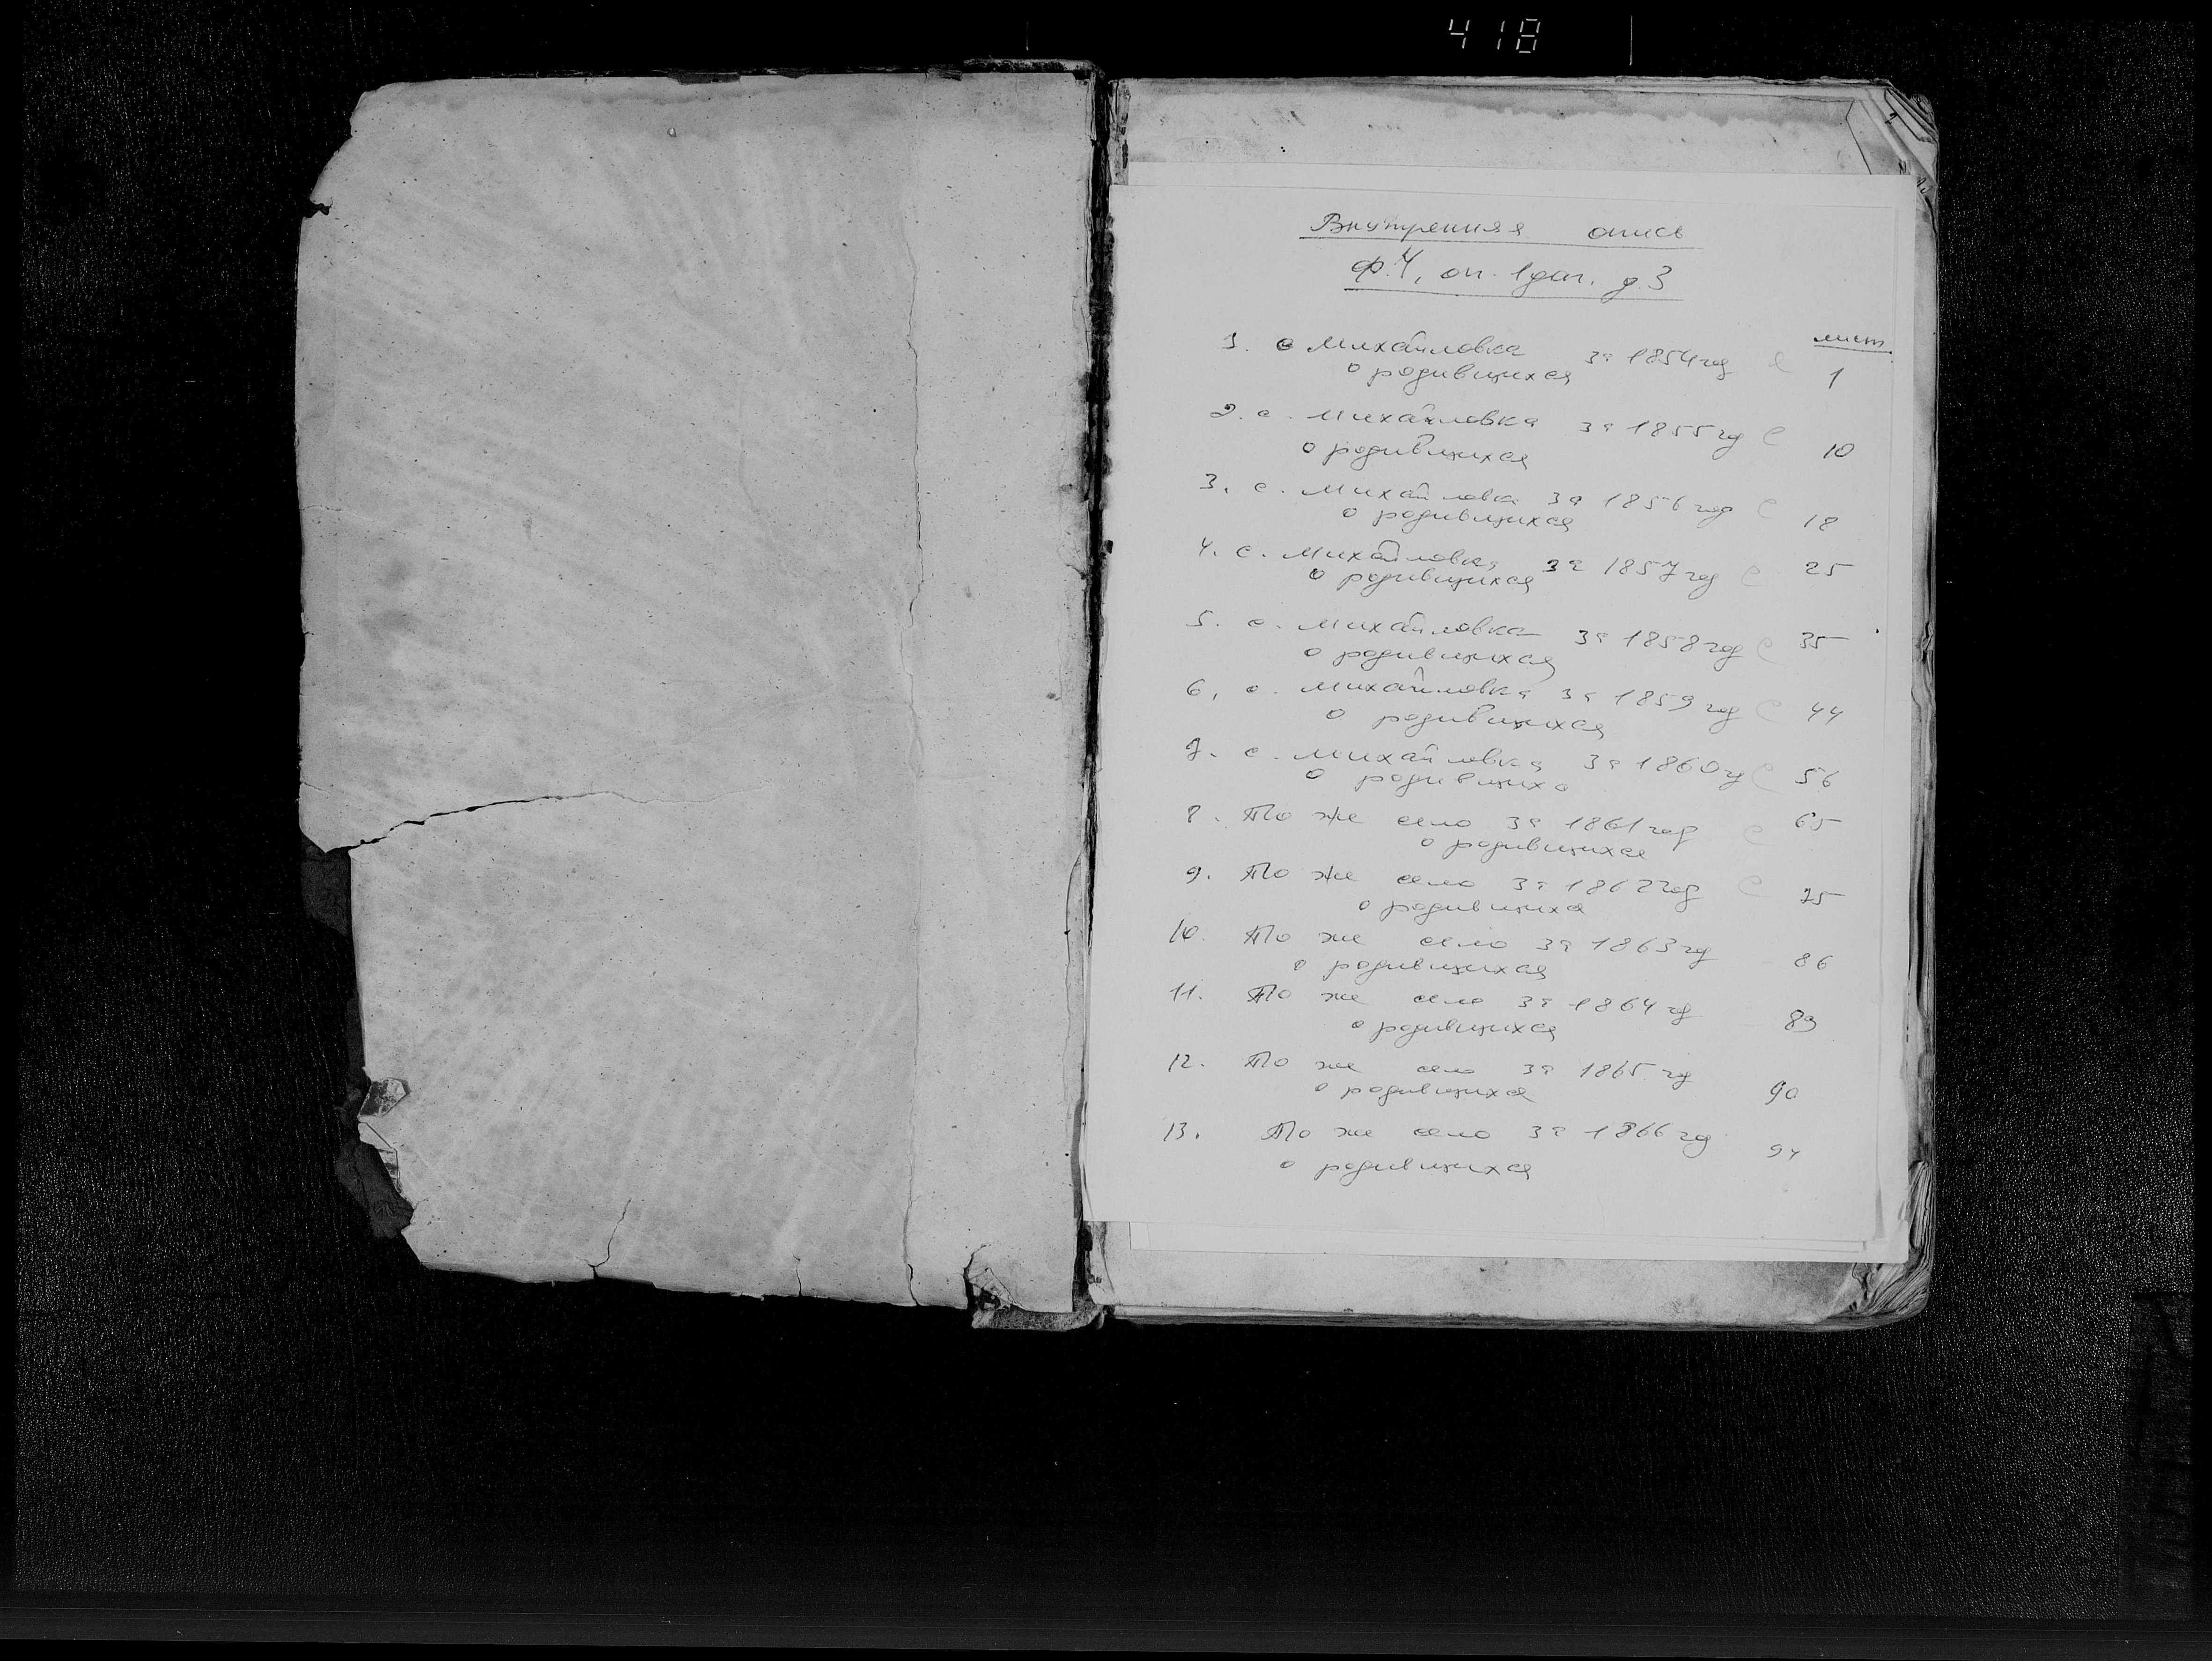 418
Внутренняя опись
ф.4, оп. 1доп. д.3
лист
1. с Михайловка за 1854 год с 1
о родившихся
2. с. Михайловка за 1855 год с 10
о родившихся
3. с. Михайловка за 1856 год с 18
о родившихся
4. с. Михайловка за 1857 год с 25
о родившихся
5. с. Михайловка за 1858 год с 35
о родившихся
6. с. Михайловка за 1859 год с 44
о родившихся
7. с. Михайловка за 1860 г с 56
о родившихс
8. То же село за 1861 год с 65
о родившихся
9. То же село за 1862 год с 75
о родившихся
10. То же село за 1863 год 86
о родившихся
11. То же село за 1864 год 89
о родившихся
12. То же село за 1865 год 90
о родившихся
13. То же село за 1866 год 94
о родившихся